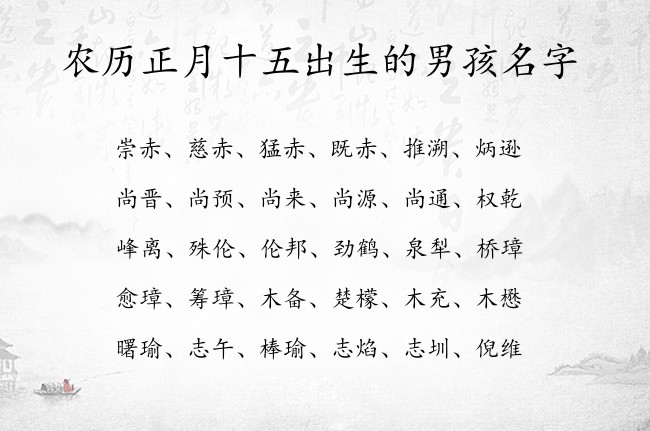 农历正月十五出生的男孩名字
崇赤、慈赤、猛赤、既赤、推溯、炳逊
尚晋、尚预、尚来、尚源、尚通、权乾
峰离、殊伦、伦邦、劲鹤、泉犁、桥璋
愈璋、筹璋、木备、楚檬、木充、木懋
曙瑜、志午、棒瑜、志焰、志圳、倪维